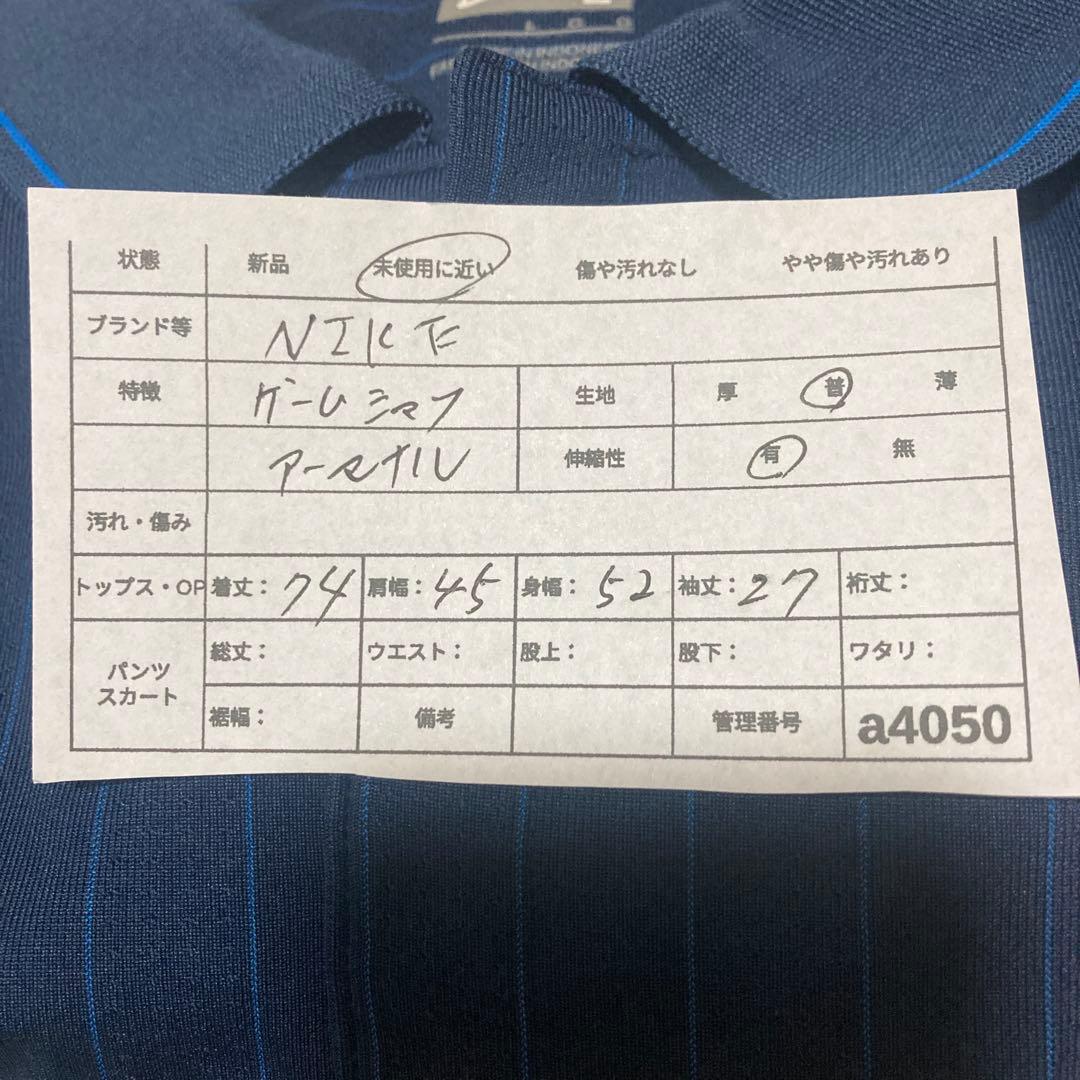 IN INDONES
状態 新品 未使用に近い 傷や汚れなし やや傷や汚れあり
ブランド等 NIKE
特徴 ゲームシャツ 生地 厚 普 薄
アーセナル 伸縮性 有 無
汚れ・傷み
トップス・OP 着丈：74 肩幅：45 身幅：52 袖丈：27 裄丈：
パンツ スカート 総丈： ウエスト： 股上： 股下： ワタリ：
裾幅： 備考 管理番号 a4050